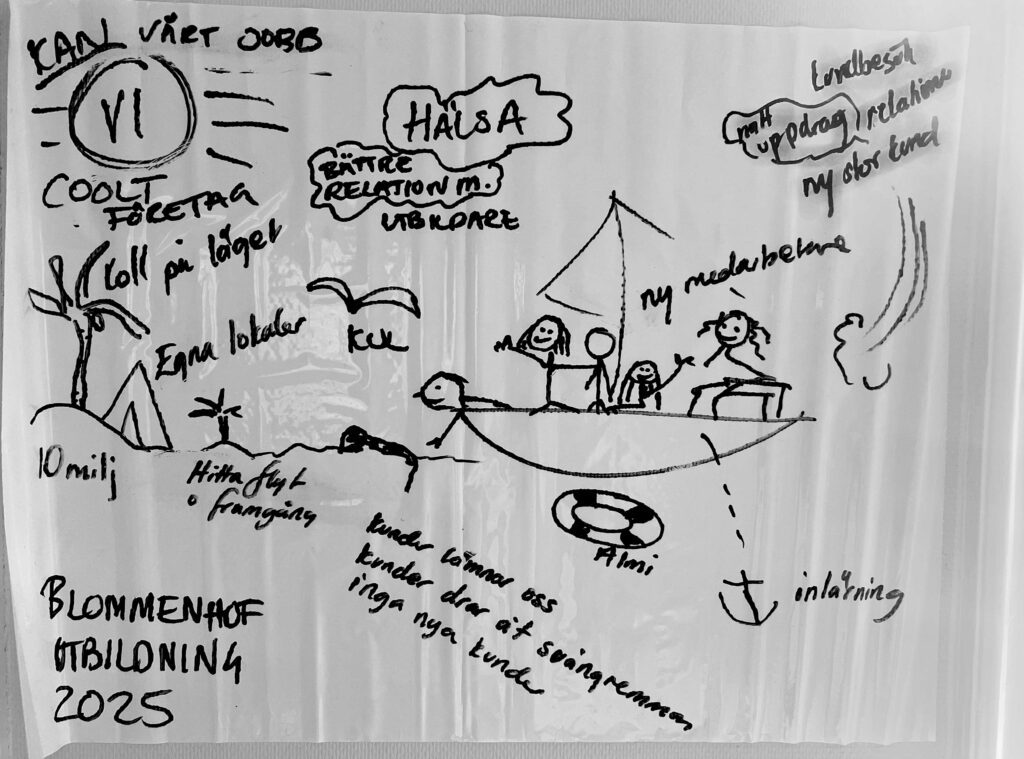 KAN VÅRT JOBB
VI
COOLT
FÖRETAG
HÄLSA
BÄTTRE
RELATION M.
UTBILDARE
kundbesök
nytt
uppdrag
relationer
ny stor kund
Koll på läget
Egna lokaler
KUL
ny medarbetare
10 milj
Hitta flyt
o framgång
Almi
inlärning
kunder lämnar oss
kunder drar åt svångremmen
inga nya kunder
BLOMMENHOF
UTBILDNING
2025